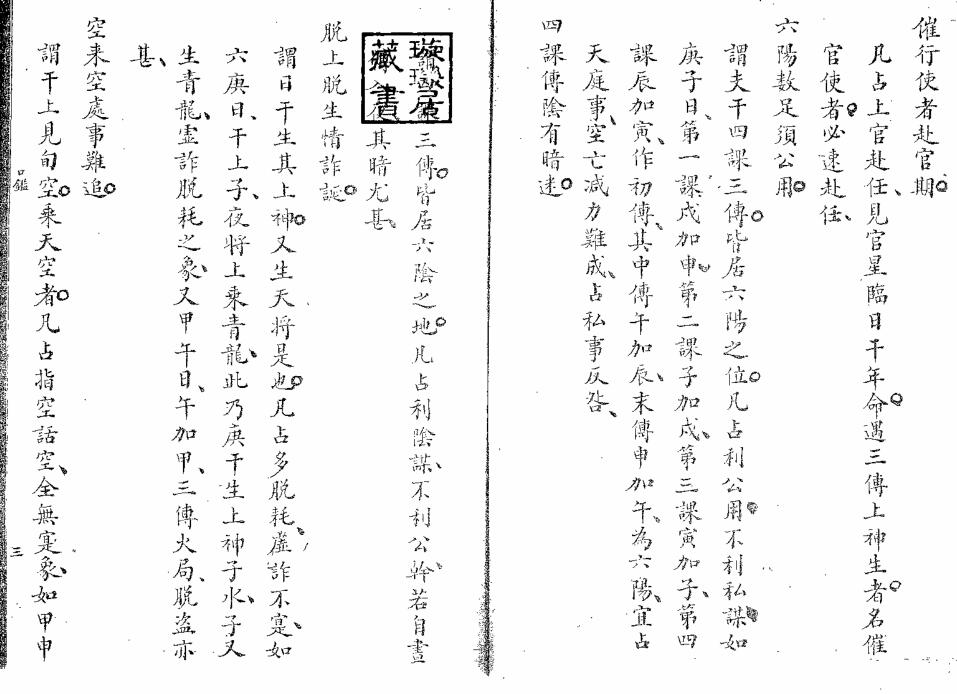 催行使者赴官期
凡占上官赴任見官星臨日干年命遇三傳上神生者名催
官使者必速赴任
六陽數足須公用
謂夫干四課三傳皆居六陽之位凡占利公用不利私謀如
庚子日第一課戌加申第二課子加戌第三課寅加子第四
課辰加寅作初傳其中傳午加辰末傳申加午為六陽宜占
天庭事空亡減力難成占私事反咎
四課傳陰有暗迷
三傳皆居六陰之地凡占利陰謀不利公幹若自晝
其暗尤甚
脫上脫生情詐誕
謂日干生其上神又生天將是也凡占多脫耗虛詐不寔如
六庚日干上子夜將上乘青龍此乃庚干生上神子水子又
生青龍虛詐脫耗之象又甲午日午加甲三傳火局脫盜亦
甚
空来空處事難追
謂干上見旬空乘天空者凡占指空話空全無寔象如甲申
口鑑
三
藏書